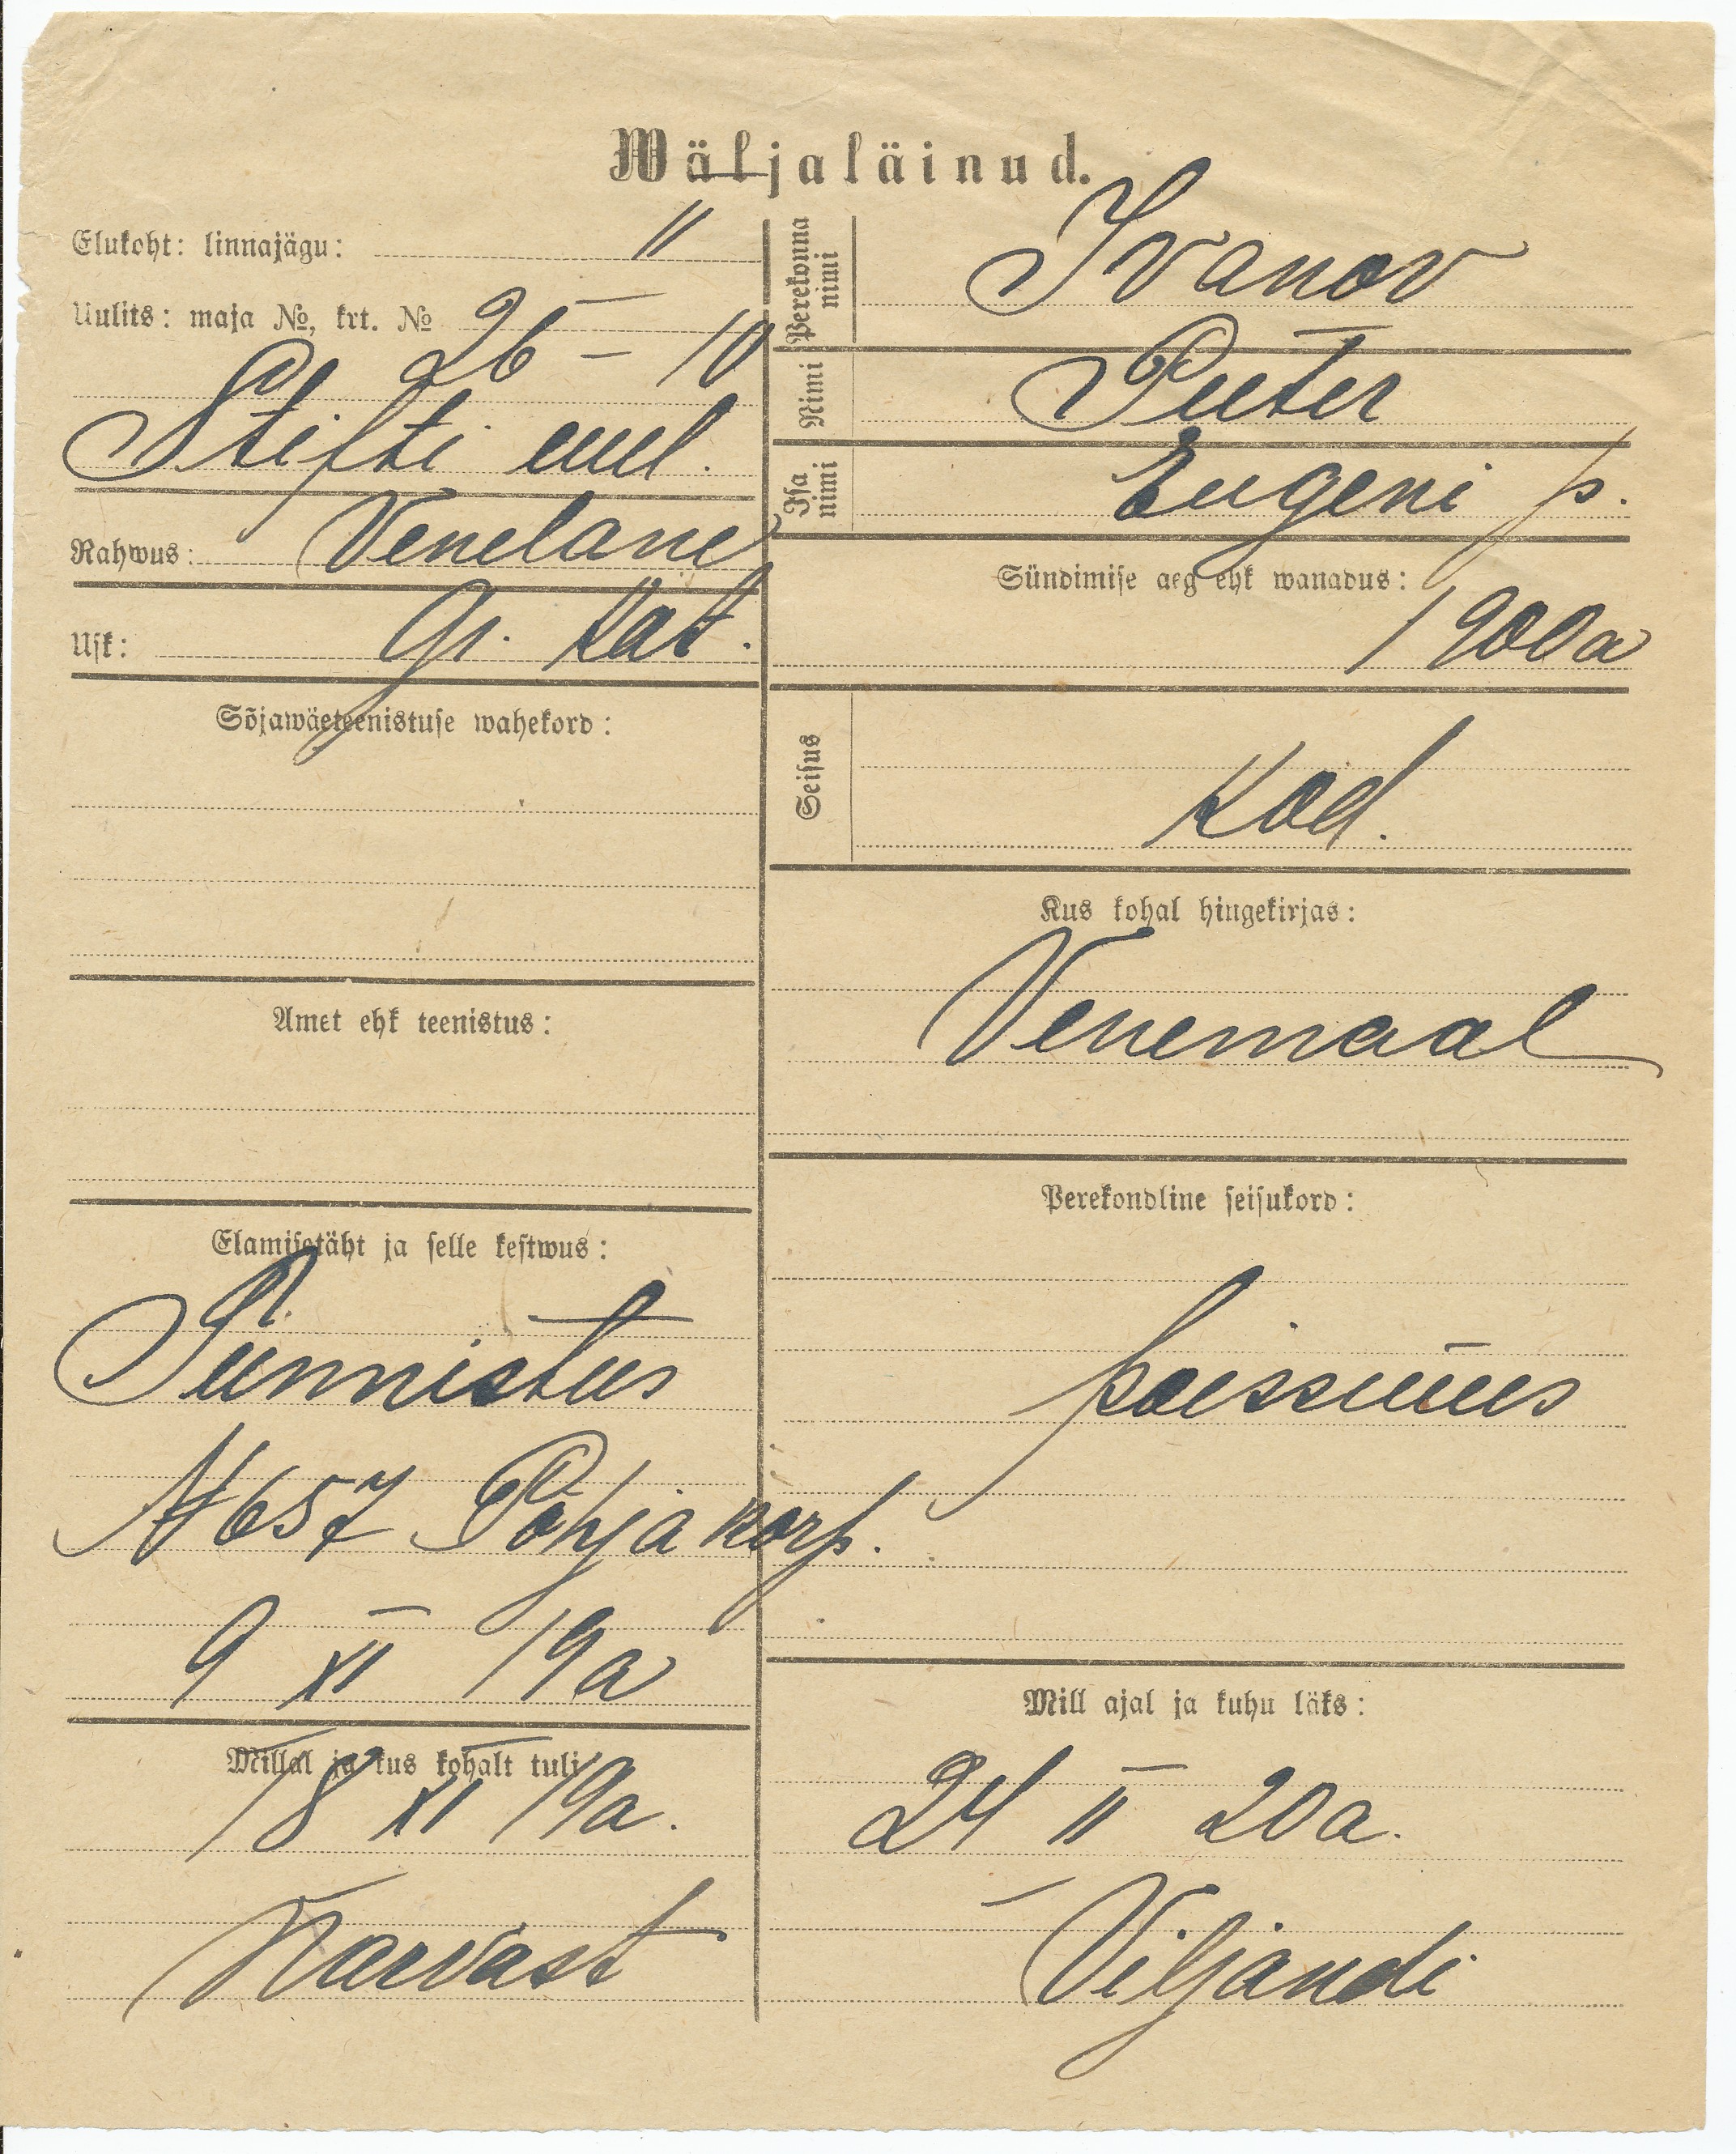 Wäljaläinud.
Elukoht: linnajägu: II
Uulits: maja №, krt. № 26 – 10
Stifti uul.
Rahwus: Venelane
Usk: Gr. Kat.
Sõjawäeteenistuse wahekord:
Amet ehk teenistus:
Elamisetäht ja selle kestwus:
Tunnistus
N 657 Põhja korp.
9 XI 19a
Millal ja kus kohalt tuli
18 XI 19a.
Narvast
Perekonna nimi Ivanov
Nimi Peeter
Isa nimi Eugeni p.
Sündimise aeg ehk wanadus:
1900a
Seisus Kod.
Kus kohal hingekirjas:
Venemaal
Perekondline seisukord:
poissmees
Mill ajal ja kuhu läks:
24 II 20a.
Viljandi